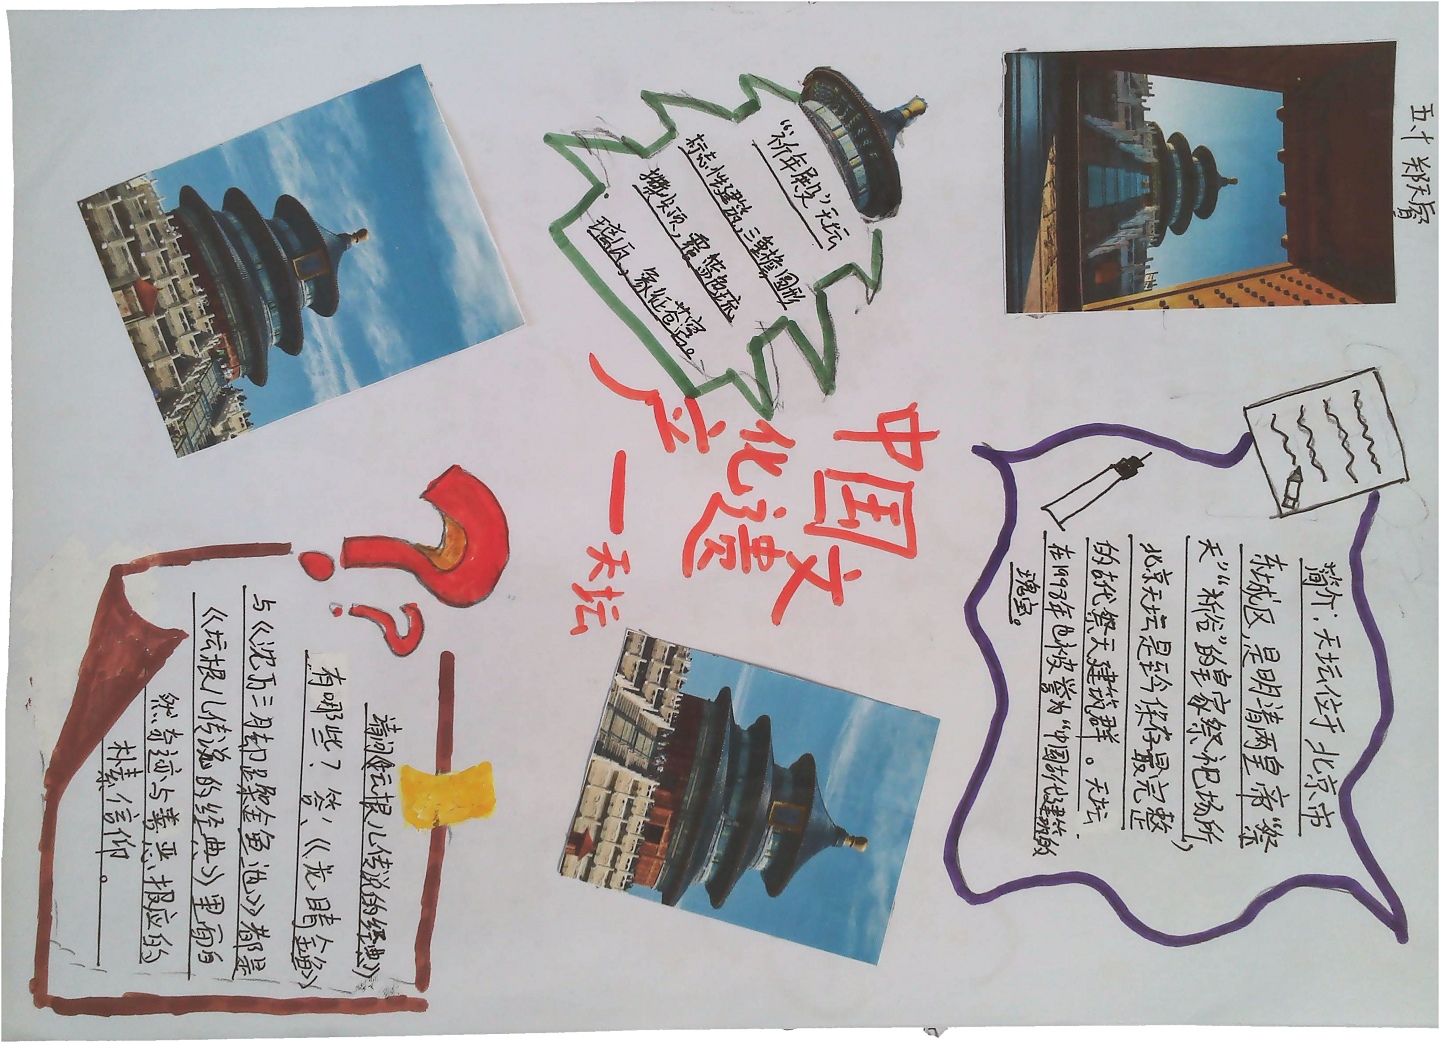 五、十 郑天睿
简介：天坛位于北京市
东城区，是明清两皇帝“祭
天”“祈谷”的皇家祭祀场所，
北京天坛是至今保存最完整
的古代祭天建筑群。天坛
在1998年也被誉为“中国古代建筑的
瑰宝。
中国文化遗产—天坛
“祈年殿”天坛
标志性建筑，三重檐圆形
攒尖顶，覆蓝色琉
璃瓦，象征苍穹。
请问《坛根儿传说的经典》
有哪些？答：《龙睛金鱼》
与《沈万三月却踩金鱼池》都是
《坛根儿传说的经典》里面自
然奇迹与善恶报应的
朴素信仰。